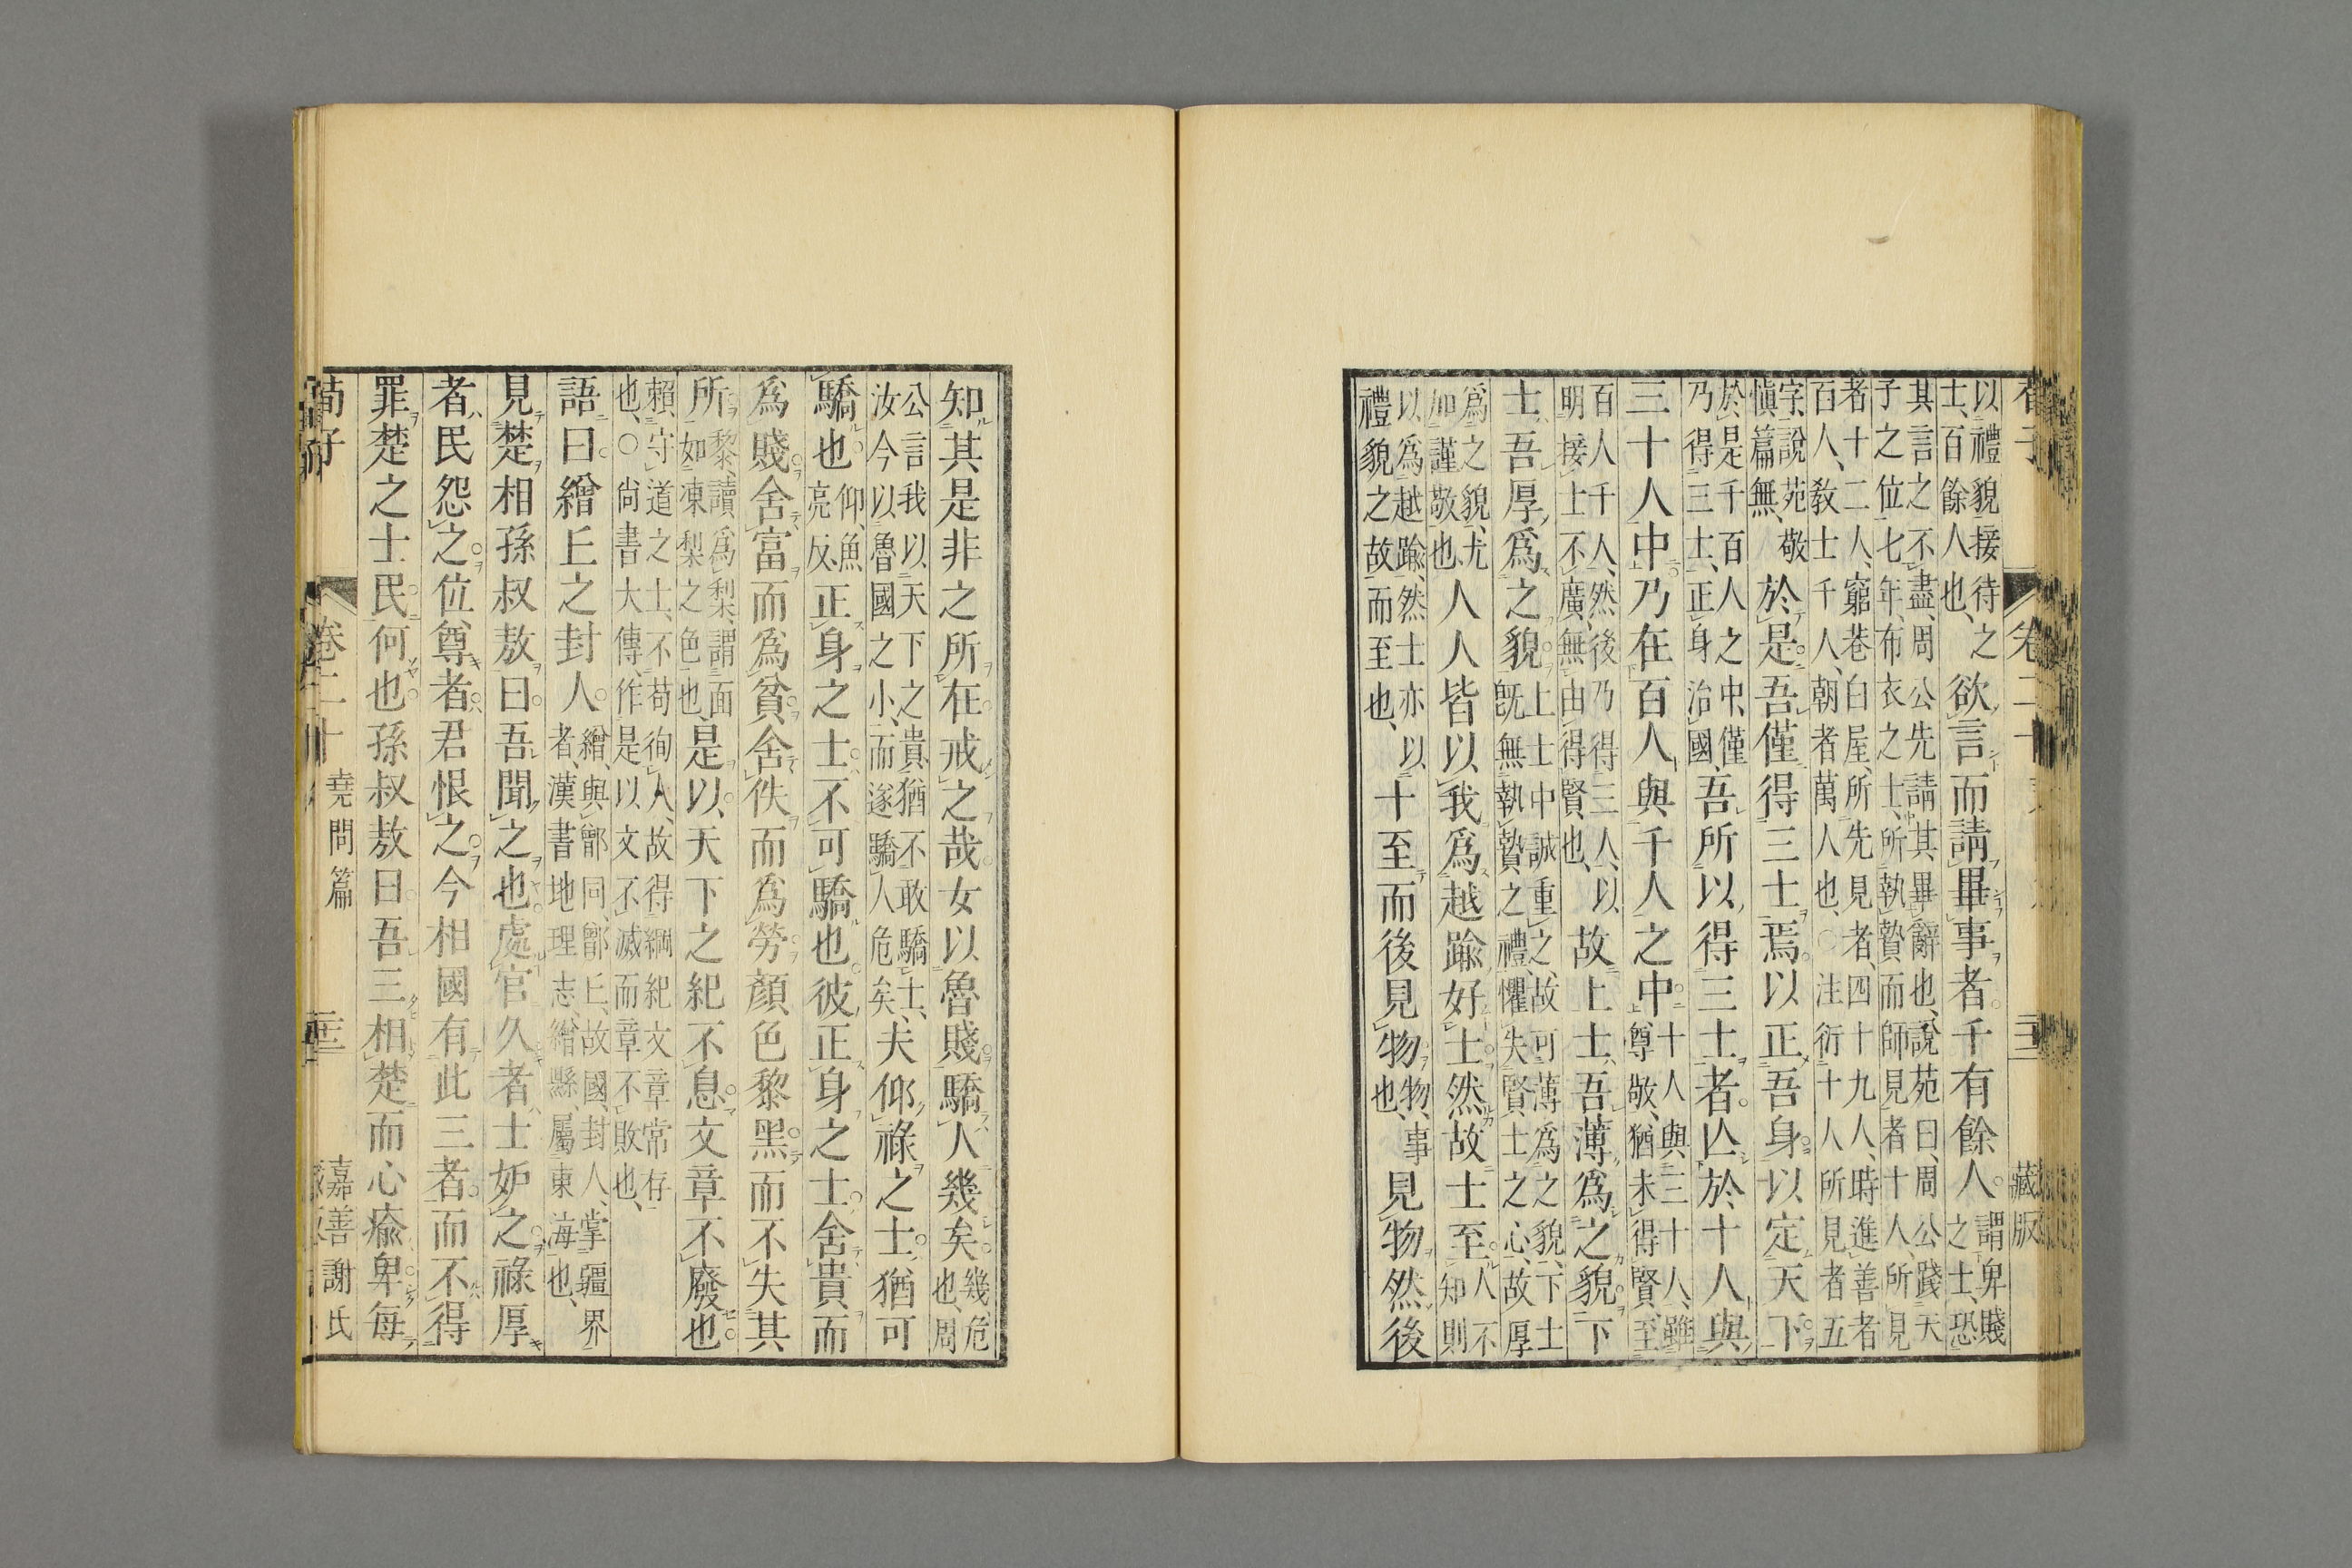 荀子 卷二十 藏版
以禮貌接待之
士、百餘人也、
欲言而請畢事者。千有餘人。
謂卑賤
之士、恐
其言之不盡、周公先請其畢辭也、說苑曰、周公踐天
子之位七年、布衣之士、所執贄而師見者十人、所見
者十二人、窮巷白屋、所先見者、四十九人、時進善者
百人、教士千人、朝者萬人也、○注衍十人所見者五
字、說苑敬
愼篇無、
於是吾僅得三士焉。以正吾身。以定天下。
於是千百人之中、僅
乃得三士、正身治國、
吾所以得三士者。亾於十人與
三十人中。乃在百人與千人之中。
十人與三十人、雖
尊敬、猶未得賢、至
百人千人、然後乃得三人、以
明接士不廣、無由得賢也、
故上士吾薄爲之貌。下
士吾厚爲之貌。
上士中誠重之、故可薄爲之貌、下士
旣無執贄之禮、懼失賢士之心、故厚
爲之貌、尤
加謹敬也
人人皆以我爲越踰好士。然故士至。
人不
知則
以爲越踰、然士亦以
禮貌之故而至也、
十至而後見物
物、事
也、
見物然後
知其是非之所在。戒之哉。女以魯賤。驕人幾矣。
幾、危
也、周
公言我以天下之貴、猶不敢驕士、
汝今以魯國之小、而遂驕人危矣、
夫仰祿之士。猶可
驕也。
仰、魚
亮反、
正身之士。不可驕也。彼正身之士。舍貴而
爲賤。舍富而爲貧。舍佚而爲勞。顏色黎黑。而不失其
所。
黎、讀爲梨、謂面
如凍梨之色也、
是以天下之紀不息。文章不廢也。
賴守道之士、不苟徇人、故得綱紀文章常存
也、○尙書大傳、作是以文不滅而章不敗也、
語曰。繒丘之封人。
繒、與鄫同、鄫丘、故國、封人、掌疆界
者、漢書地理志、繒縣、屬東海也、
見楚相孫叔敖曰。吾聞之也。處官久者。士妒之。祿厚
者。民怨之。位尊者。君恨之。今相國有此三者。而不得
罪楚之士民。何也。孫叔敖曰。吾三相楚。而心瘉卑。每
荀子 卷二十 堯問篇 嘉善謝氏